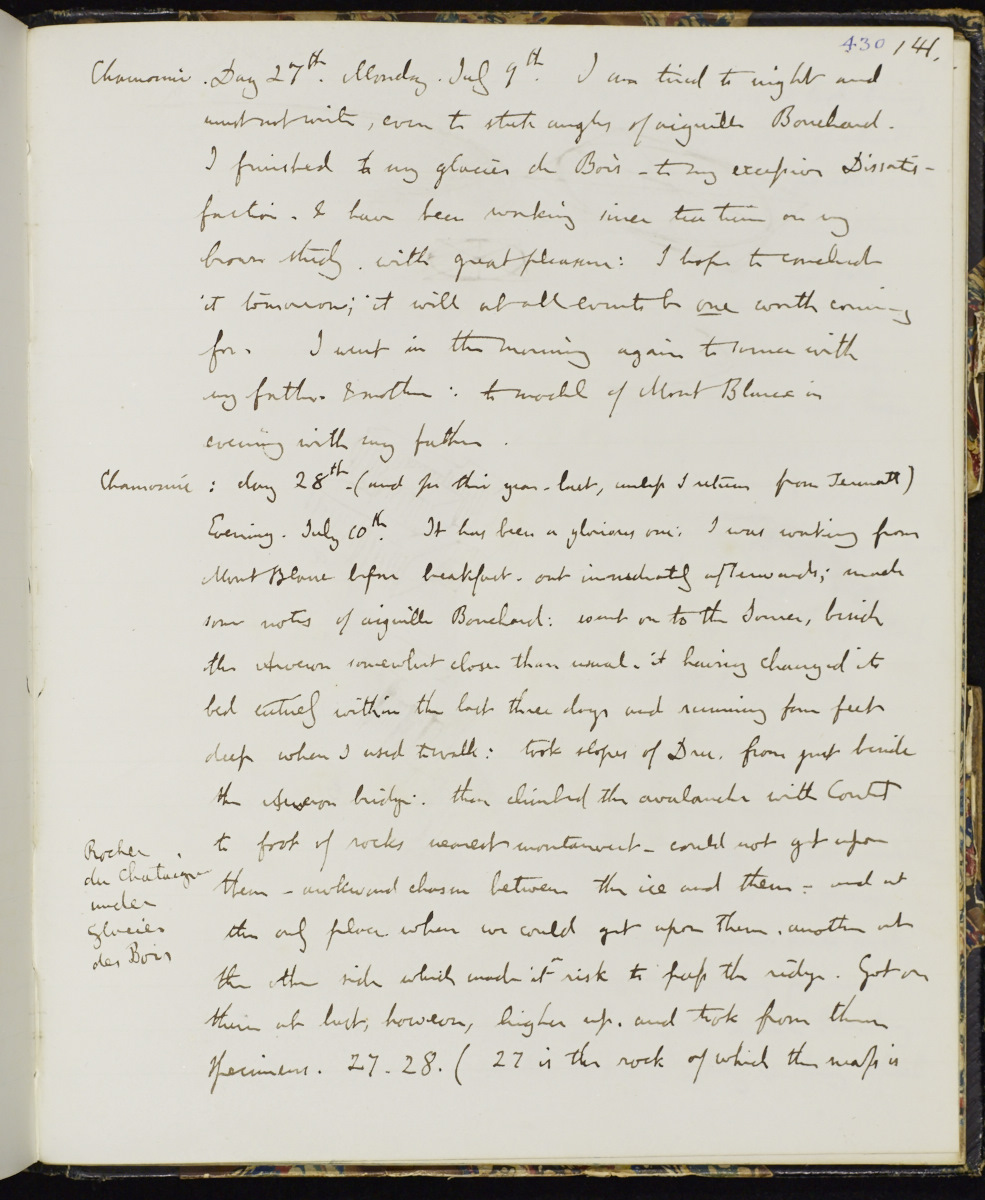 430 141.
Chamouni. Day 27th. Monday. July 9th. I am tired to night and
must not write, even to state angles of aiguille Bouchard.
I finished to my glacier de Bois - to my excessive Dissatis-
faction. I have been working since tea time on my
brown study. with great pleasure: I hope to conclude
it tomorrow; it will at all events be one worth coming
for. I went in the morning again to source with
my father & mother: to model of Mont Blanc in
evening with my father.
Chamouni: day 28th - (and for this year - last, unless I return from Zermatt)
Evening. July 10th. It has been a glorious one: I was working from
Mont Blanc before breakfast. out immediately afterwards; made
some notes of aiguille Bouchard: went on to the Source, beside
the Arveron somewhat closer than usual. it having changed its
bed entirely within the last three days and running four feet
deep where I used to walk: took slopes of Dru. from just beside
the Arveron bridge. then climbed the avalanche with Coutet
to foot of rocks nearest montanvert - could not get upon
them - awkward chasm between the ice and them - and at
the only place where we could get upon them, another at
the other side which made it risk to pass the ridge. Got on
them at last, however, higher up. and took from them
specimens. 27. 28. ( 27 is the rock of which the mass is
Rocher
du Chataigne
under
glacier
des Bois